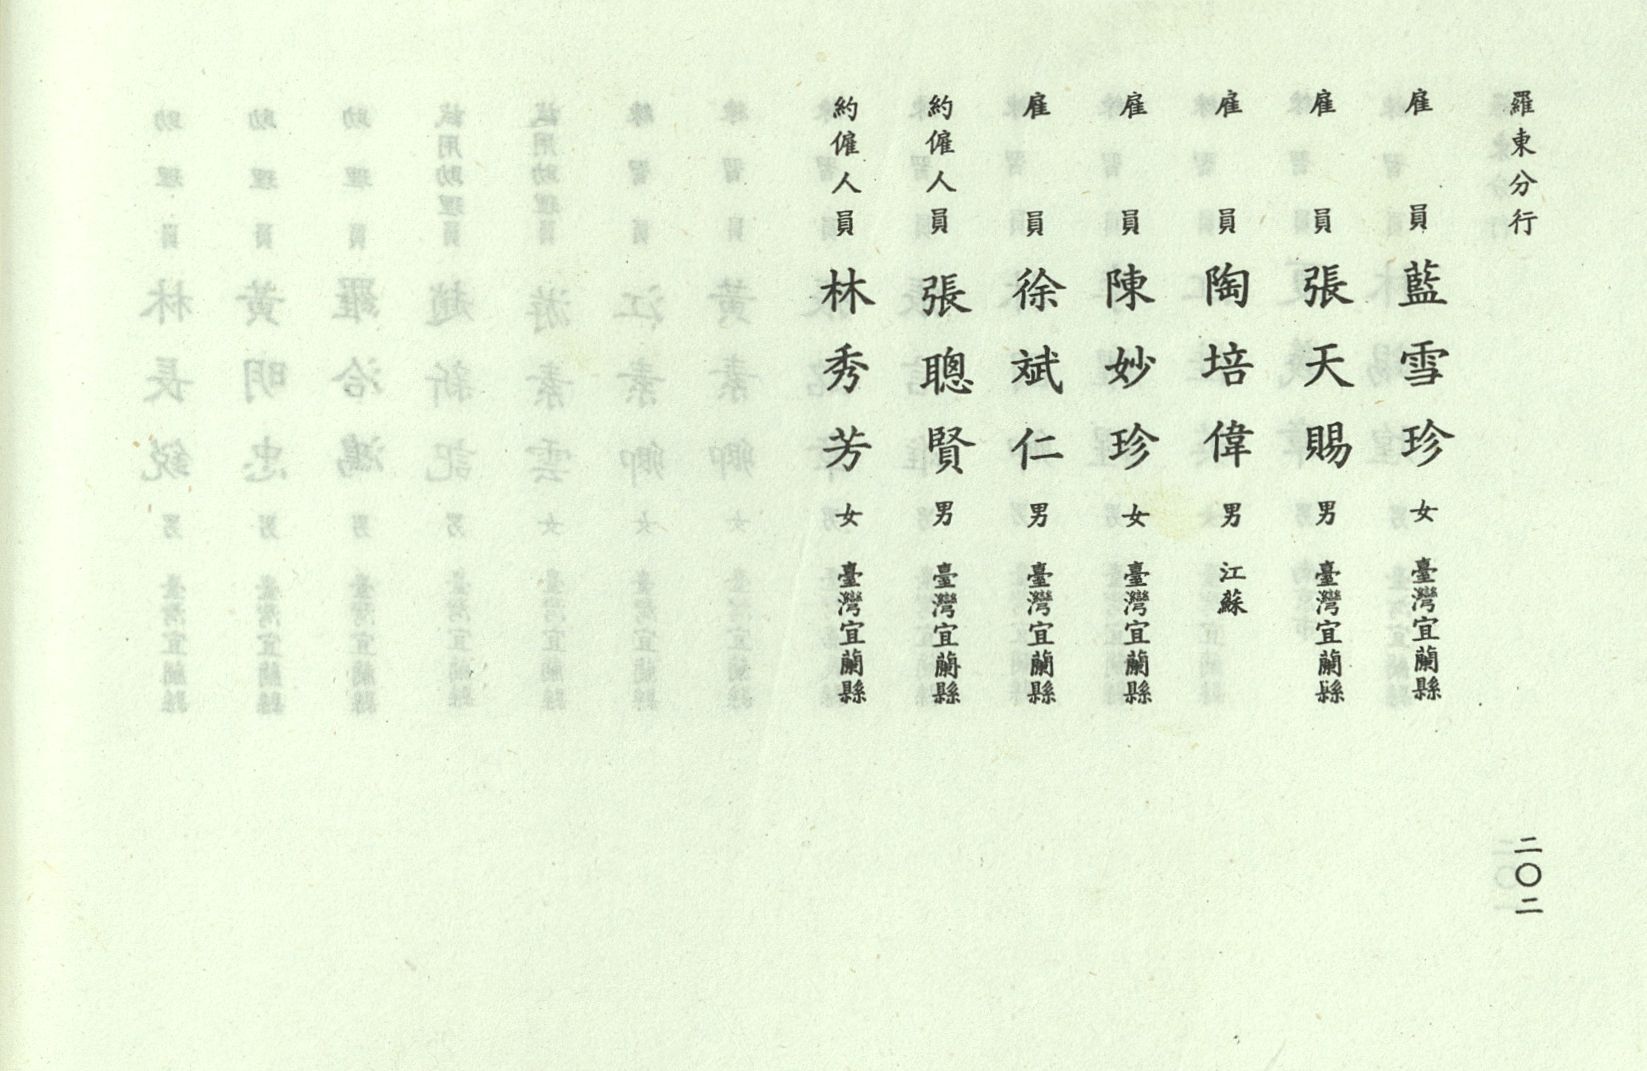 羅東分行
雇員 藍雪珍 女 臺灣宜蘭縣
雇員 張天賜 男 臺灣宜蘭縣
雇員 陶培偉 男 江蘇
雇員 陳妙珍 女 臺灣宜蘭縣
雇員 徐斌仁 男 臺灣宜蘭縣
約僱人員 張聰賢 男 臺灣宜蘭縣
約僱人員 林秀芳 女 臺灣宜蘭縣
二〇二